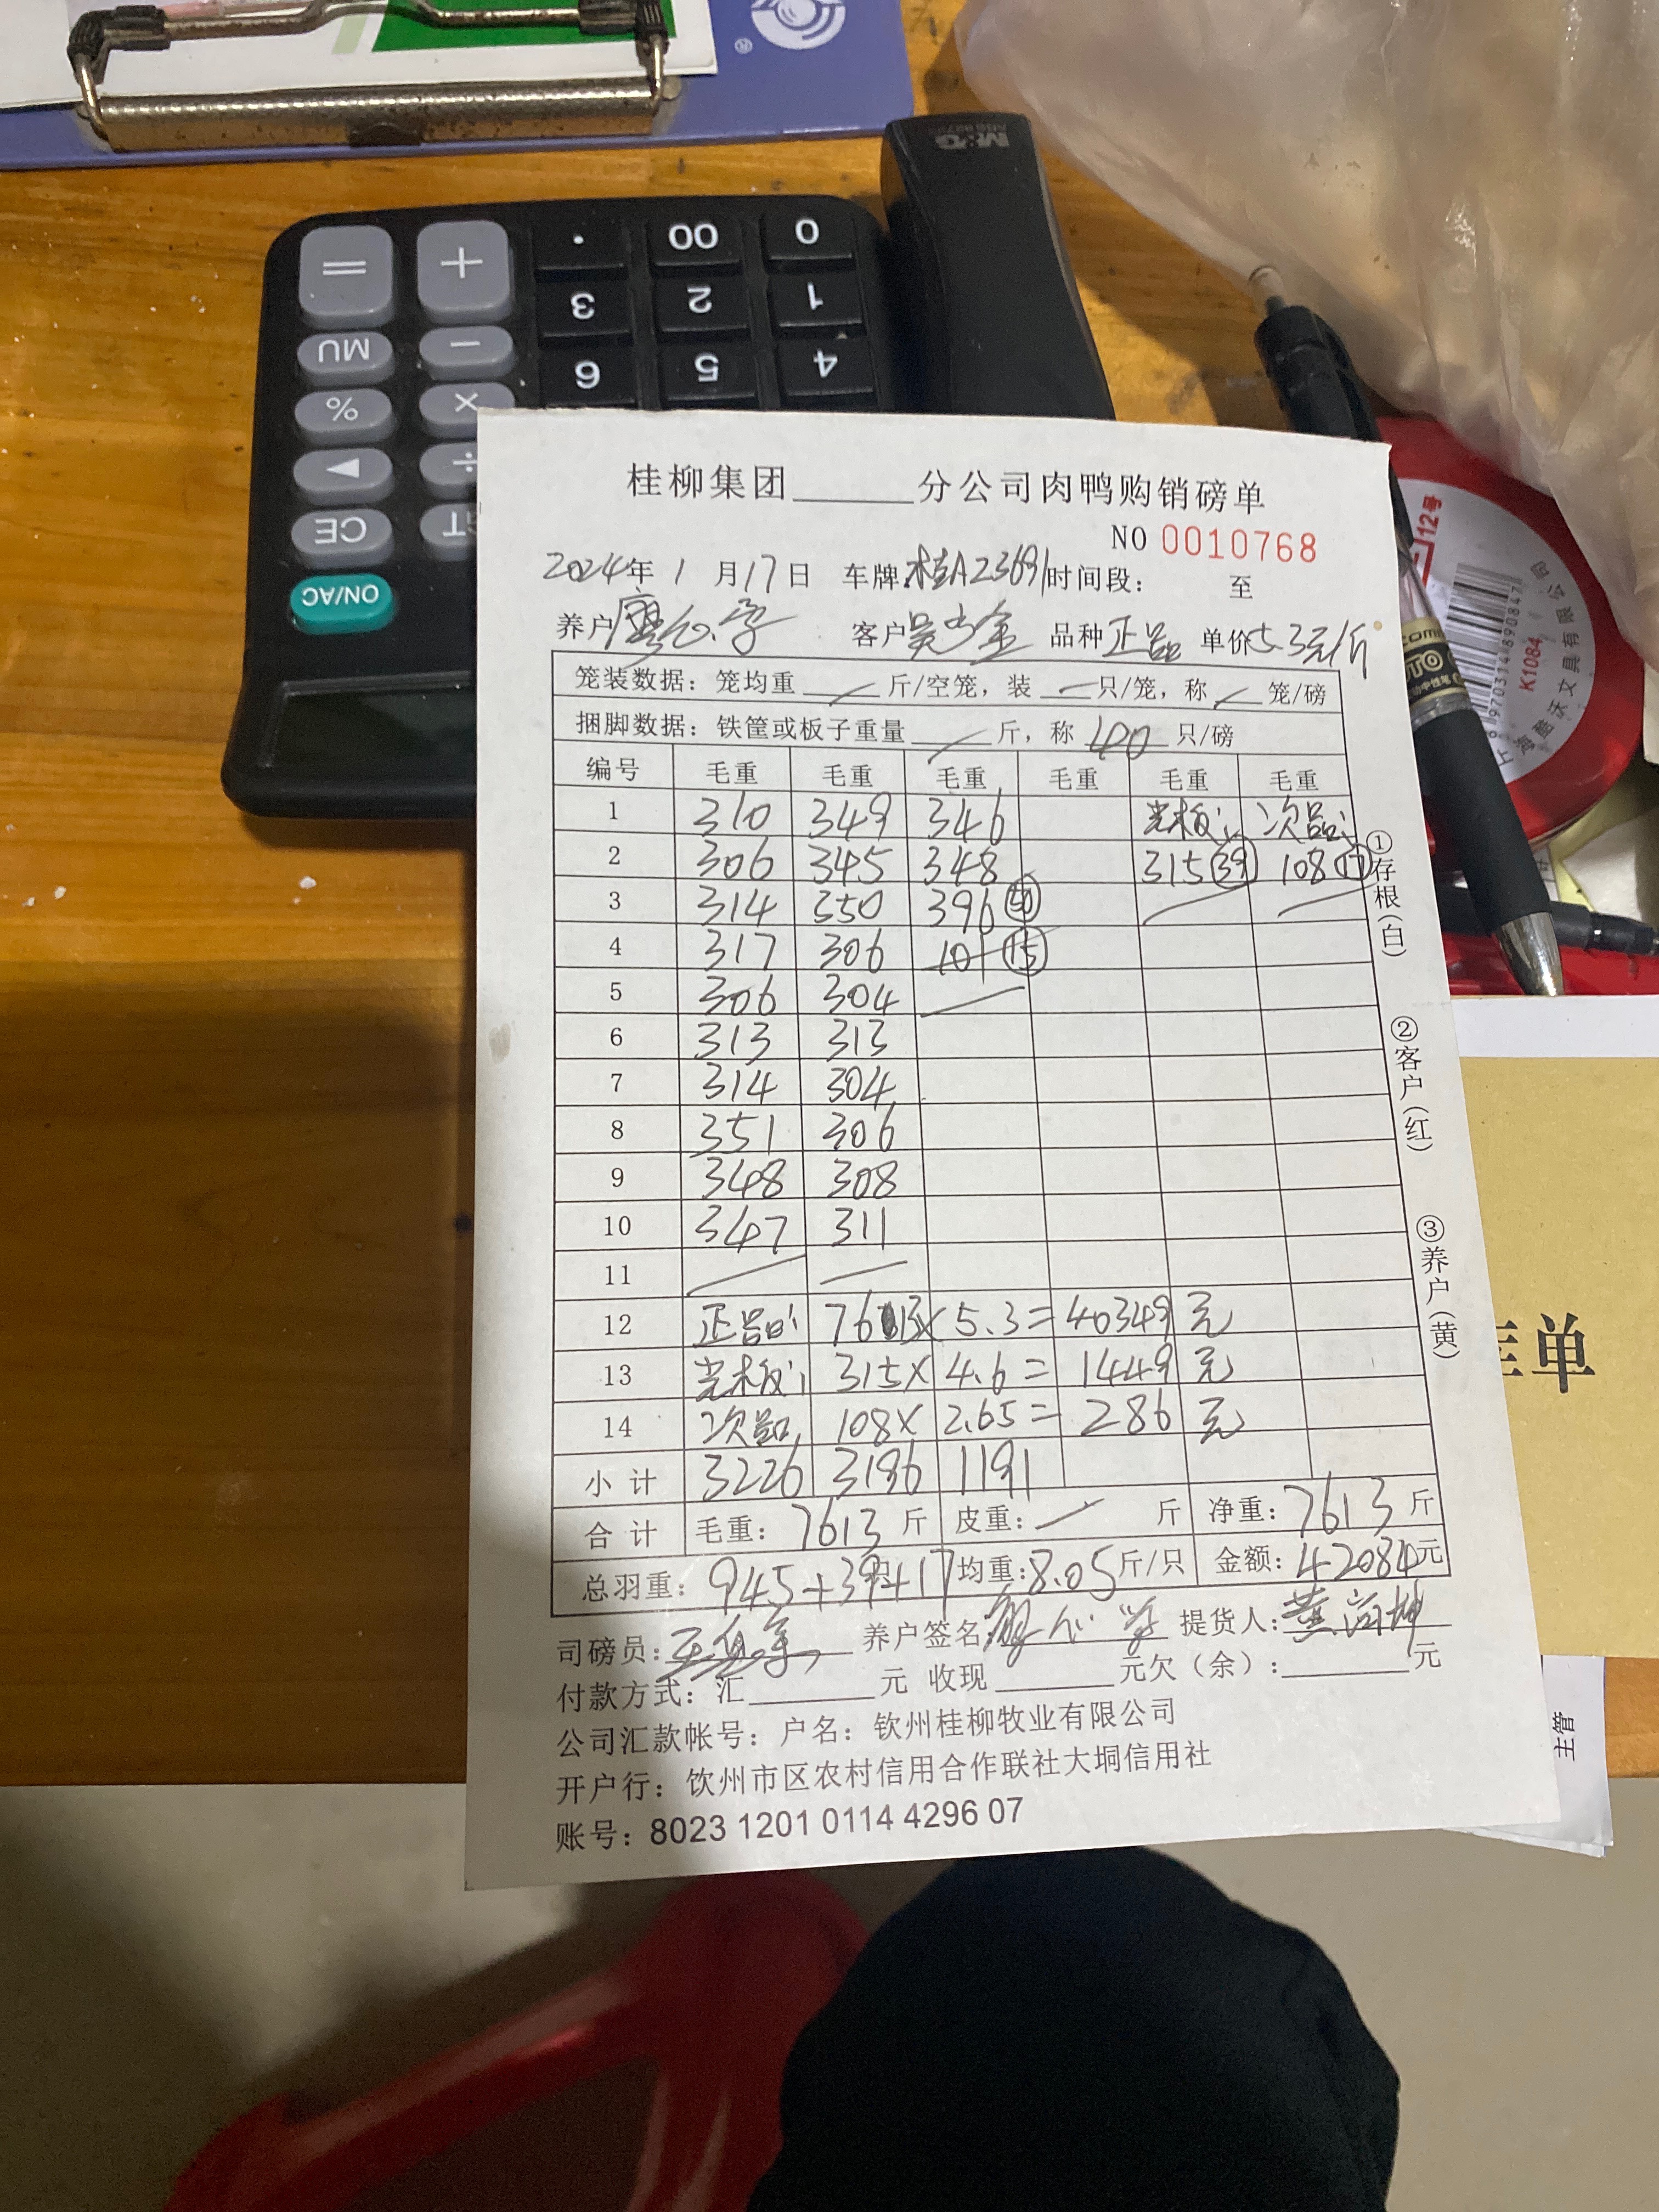 M&G
0 00 . + =
1 2 3
4 5 6 − MU
× %
÷ ▶
GT CE
ON/AC
12号
K1084
桂柳集团______分公司肉鸭购销磅单
NO 0010768
2024年 1 月17日 车牌:桂A23691时间段: 至
养户 客户 品种 正品 单价5.3元/斤
笼装数据：笼均重 / 斤/空笼，装 / 只/笼，称 / 笼/磅
捆脚数据：铁筐或板子重量 / 斤，称 40 只/磅
编号 毛重 毛重 毛重 毛重 毛重 毛重
1 310 349 346 光板: 次品:
2 306 345 348 315 39 108 17
3 314 350 396 50
4 317 306 101 15
5 306 304
6 313 313
7 314 304
8 351 306
9 348 308
10 347 311
11
12 正品: 7613× 5.3= 40349 元
13 光板: 315× 4.6= 1449 元
14 次品: 108× 2.65= 286 元
小计 3226 3196 1191
合计 毛重：7613 斤 皮重：/ 斤 净重：7613 斤
总羽重：945+39+17 均重:8.05斤/只 金额:42084元
司磅员: 养户签名: 提货人:
付款方式：汇______元 收现______元欠（余）:______元
公司汇款帐号：户名：钦州桂柳牧业有限公司
开户行：钦州市区农村信用合作联社大垌信用社
账号：8023 1201 0114 4296 07
①存根(白)
②客户(红)
③养户(黄)
单
主管